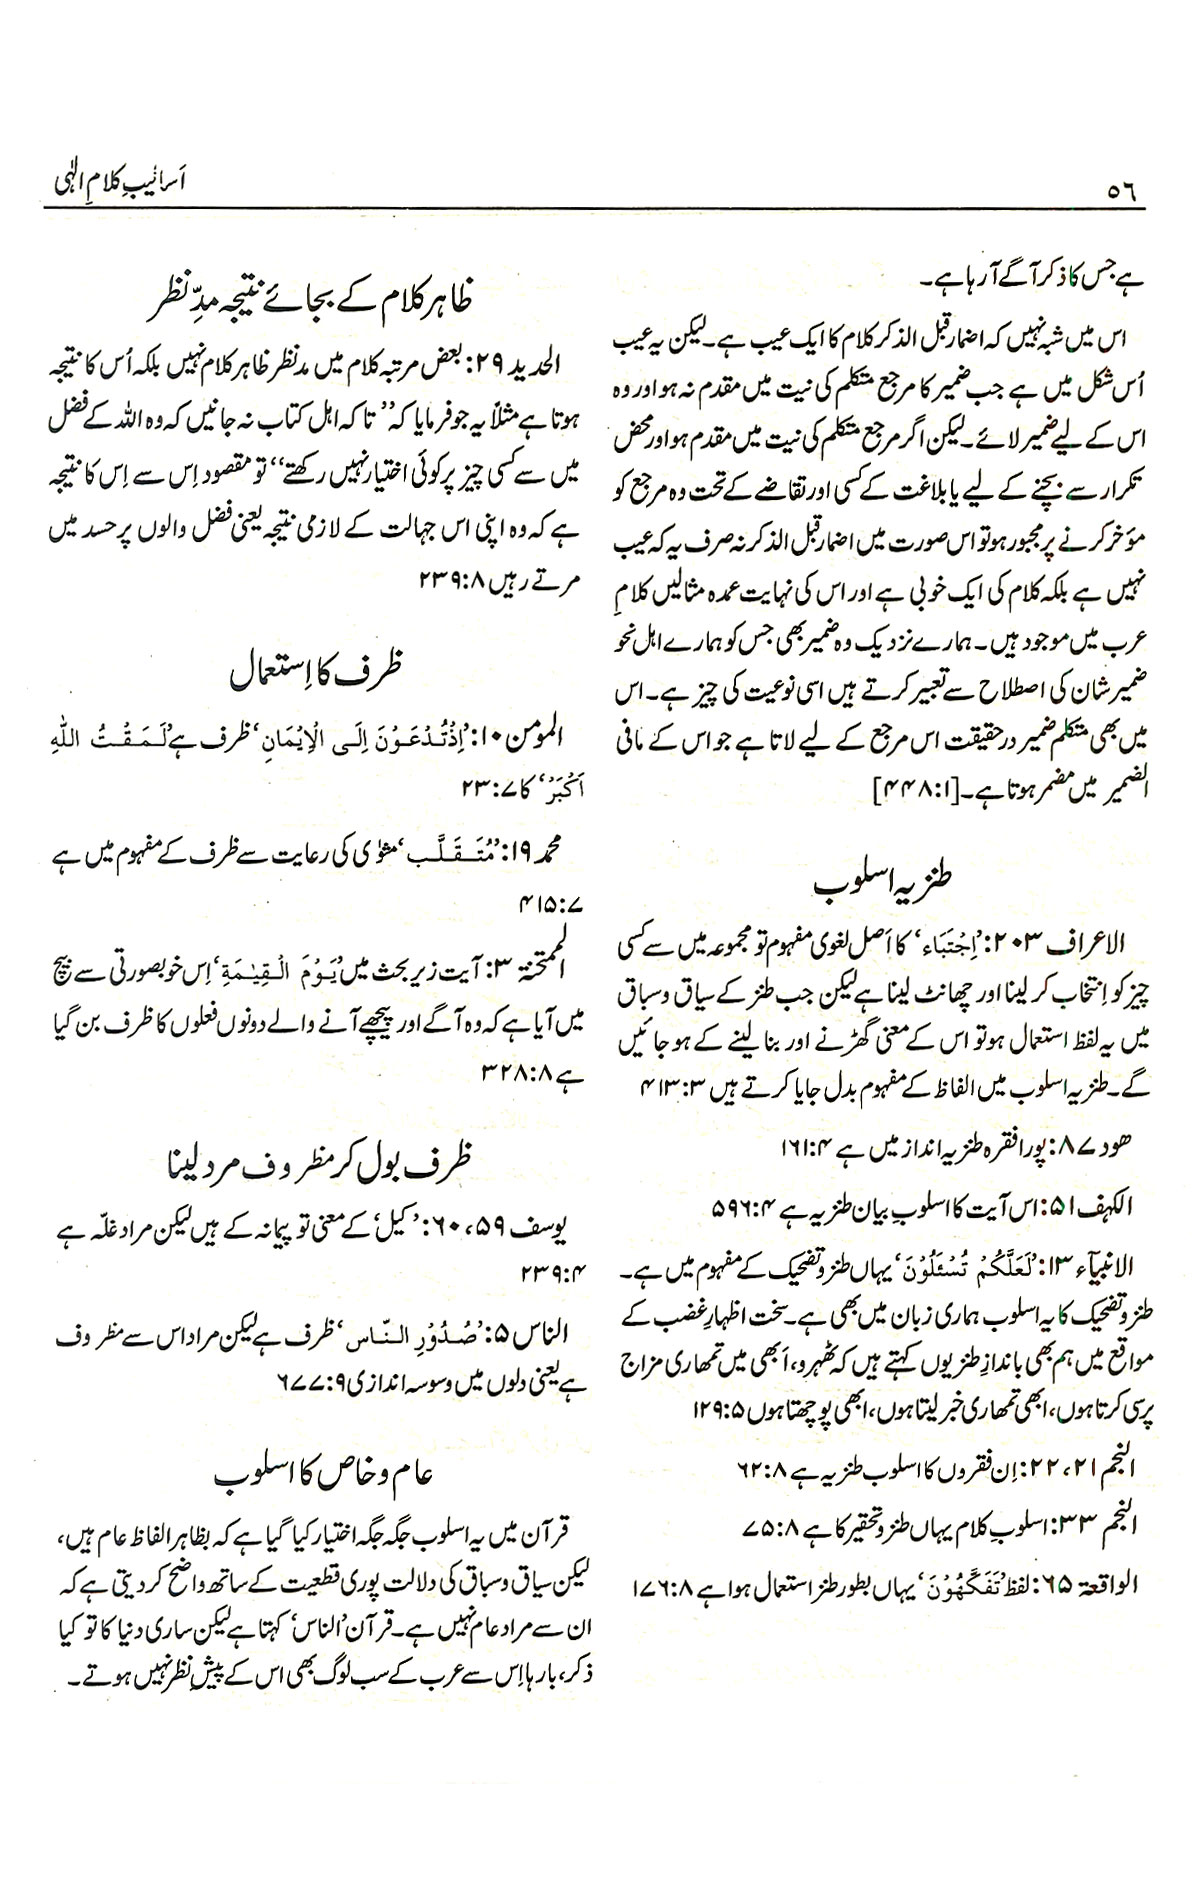 ۵۶
اَسالیبِ کلامِ الٰہی
ہے جس کا ذکر آگے آ رہا ہے۔
اس میں شبہ نہیں کہ اضمار قبل الذکر کلام کا ایک عیب ہے۔ لیکن یہ عیب
اُس شکل میں ہے جب ضمیر کا مرجع متکلم کی نیت میں مقدم نہ ہو اور وہ
اس کے لیے ضمیر لائے۔ لیکن اگر مرجع متکلم کی نیت میں مقدم ہو اور محض
تکرار سے بچنے کے لیے یا بلاغت کے کسی اور تقاضے کے تحت وہ مرجع کو
مؤخر کرنے پر مجبور ہو تو اس صورت میں اضمار قبل الذکر نہ صرف یہ کہ عیب
نہیں ہے بلکہ کلام کی ایک خوبی ہے اور اس کی نہایت عمدہ مثالیں کلامِ
عرب میں موجود ہیں۔ ہمارے نزدیک وہ ضمیر بھی جس کو ہمارے اہل نحو
ضمیر شان کی اصطلاح سے تعبیر کرتے ہیں اسی نوعیت کی چیز ہے۔ اس
میں بھی متکلم ضمیر درحقیقت اس مرجع کے لیے لاتا ہے جو اس کے مافی
الضمیر میں مضمر ہوتا ہے۔ [۴۴۸:۱]
طنزیہ اسلوب
الاعراف ۲۰۳: ’اِجْتَبَاء‘ کا اَصل لغوی مفہوم تو مجموعہ میں سے کسی
چیز کو اِنتخاب کر لینا اور چھانٹ لینا ہے لیکن جب طنز کے سیاق و سباق
میں یہ لفظ استعمال ہو تو اس کے معنی گھڑنے اور بنا لینے کے ہو جائیں
گے۔ طنزیہ اسلوب میں الفاظ کے مفہوم بدل جایا کرتے ہیں ۴۱۳:۳
ھود ۸۷: پورا فقرہ طنزیہ انداز میں ہے ۱۶۱:۴
الکہف ۵۱: اس آیت کا اسلوبِ بیان طنزیہ ہے ۵۹۶:۴
الانبیآء ۱۳: ’لَعَلَّكُمْ تُسْـَٔلُوْنَ‘ یہاں طنز و تضحیک کے مفہوم میں ہے۔
طنز و تضحیک کا یہ اسلوب ہماری زبان میں بھی ہے۔ سخت اظہارِ غضب کے
مواقع میں ہم بھی باندازِ طنز یوں کہتے ہیں کہ ٹھہرو، اَبھی میں تمھاری مزاج
پرسی کرتا ہوں، ابھی تمھاری خبر لیتا ہوں، ابھی پوچھتا ہوں ۱۲۹:۵
النجم ۲۱، ۲۲: اِن فقروں کا اسلوب طنزیہ ہے ۶۲:۸
النجم ۳۳: اسلوبِ کلام یہاں طنز و تحقیر کا ہے ۷۵:۸
الواقعۃ ۶۵: لفظ ’تَفَكَّهُوْنَ‘ یہاں بطور طنز استعمال ہوا ہے ۱۷۶:۸
ظاہر کلام کے بجائے نتیجہ مدِّ نظر
الحدید ۲۹: بعض مرتبہ کلام میں مدنظر ظاہر کلام نہیں بلکہ اُس کا نتیجہ
ہوتا ہے مثلاً یہ جو فرمایا کہ ’’تاکہ اہل کتاب نہ جانیں کہ وہ اللہ کے فضل
میں سے کسی چیز پر کوئی اختیار نہیں رکھتے‘‘ تو مقصود اِس سے اِس کا نتیجہ
ہے کہ وہ اپنی اس جہالت کے لازمی نتیجہ یعنی فضل والوں پر حسد میں
مرتے رہیں ۲۳۹:۸
ظرف کا اِستعمال
المومن ۱۰: ’اِذْتُدْعَوْنَ اِلَى الْاِيْمَانِ‘ ظرف ہے ’لَمَقْتُ اللّٰهِ
اَكْبَرُ‘ کا ۲۳:۷
محمد ۱۹: ’مُتَقَلَّب‘ مثوٰی کی رعایت سے ظرف کے مفہوم میں ہے
۴۱۵:۷
الممتحنۃ ۳: آیت زیر بحث میں ’يَوْمَ الْقِيٰمَةِ‘ اِس خوبصورتی سے بیچ
میں آیا ہے کہ وہ آگے اور پیچھے آنے والے دونوں فعلوں کا ظرف بن گیا
ہے ۳۲۸:۸
ظرف بول کر مظروف مراد لینا
یوسف ۵۹، ۶۰: ’کیل‘ کے معنی تو پیمانہ کے ہیں لیکن مراد غلّہ ہے
۲۳۹:۴
الناس ۵: ’صُدُوْرِ النَّاس‘ ظرف ہے لیکن مراد اس سے مظروف
ہے یعنی دلوں میں وسوسہ اندازی ۶۷۷:۹
عام و خاص کا اسلوب
قرآن میں یہ اسلوب جگہ جگہ اختیار کیا گیا ہے کہ بظاہر الفاظ عام ہیں،
لیکن سیاق و سباق کی دلالت پوری قطعیت کے ساتھ واضح کر دیتی ہے کہ
ان سے مراد عام نہیں ہے۔ قرآن ’الناس‘ کہتا ہے لیکن ساری دنیا کا تو کیا
ذکر، بارہا اِس سے عرب کے سب لوگ بھی اس کے پیشِ نظر نہیں ہوتے۔